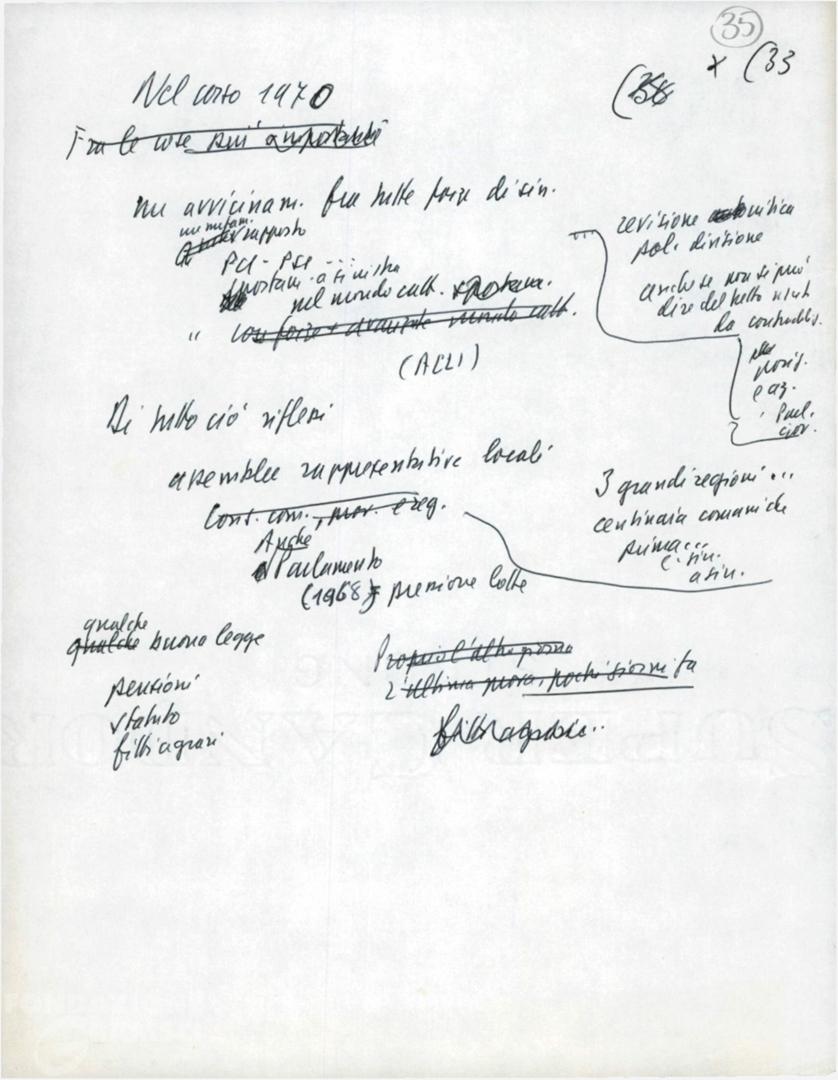 35
(33
Nel corso 1970
Fra le cose più importanti
un avvicinam. fra tutte forze di sin.
un mutam.
rapporto
PCI - PSI ...
spostam. a sinistra
nel mondo catt.
" mondo catt.
(ACLI)
revisione critica
pol. divisione
anche se non si può
dire del tutto
da contraddiz.
posiz.
e az.
Parl.
Di tutto ciò riflessi
assemblee rappresentative locali
Cons. com., prov. e reg.
Anche
Parlamento
(1968) pressione lotte
3 grandi regioni ...
centinaia comuni che
prima...
c. sin.
a sin.
qualche
qualche buona legge
pensioni
statuto
fitti agrari
Proprio l'altro giorno
L'ultima prova, pochi giorni fa
fitti agrari..